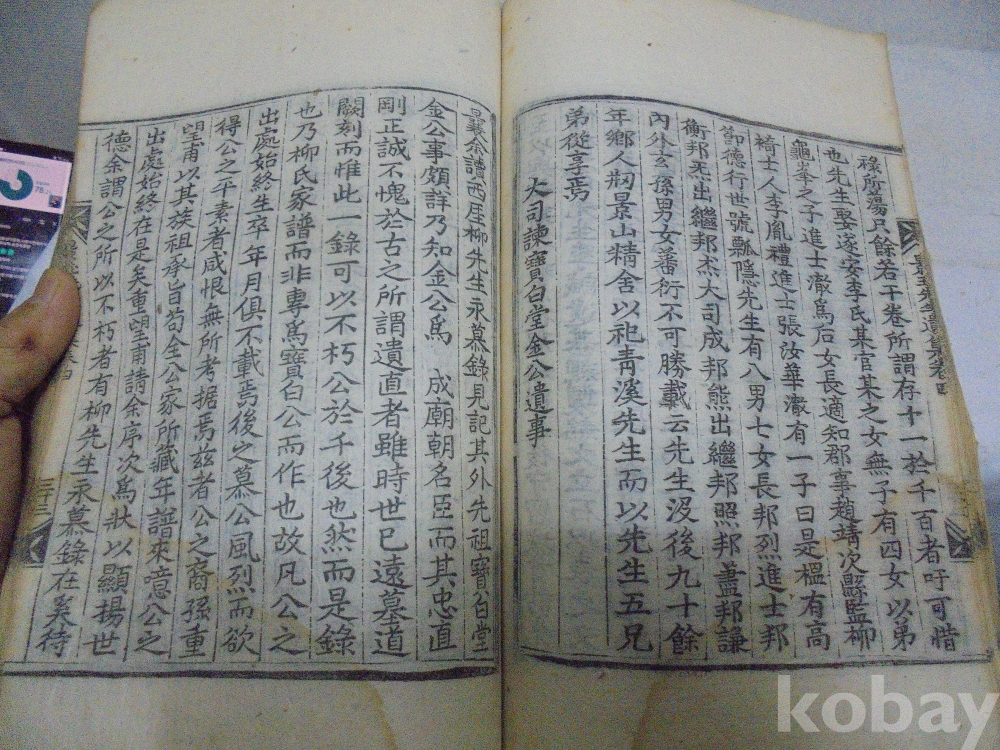 祿所蕩只餘若干卷所謂存十一於千百者吁可惜
也先生娶遂安李氏某官某之女無子有四女以弟
龜峯之子進士澈爲后女長適知郡事趙靖次縣監柳
裿士人李胤禮進士張汝華澈有一子曰是榲有高
節德行世號瓢隱先生有八男七女長邦烈進士邦
衡邦㶨出繼邦杰大司成邦熊出繼邦照邦藎邦謙
內外玄孫男女蕃衍不可勝載云先生沒後九十餘
年鄉人刱景山精舍以祀靑溪先生而以先生五兄
弟從享焉
大司諫寶白堂金公遺事
余讀西厓柳先生永慕錄見記其外先祖寶白堂
金公事頗詳乃知金公爲 成廟朝名臣而其忠直
剛正誠不愧於古之所謂遺直者雖時世已遠墓道
闕刻而惟此一錄可以不朽公於千後也然而是錄
也乃柳氏家譜而非專爲寶白公而作也故凡公之
出處始終生卒年月俱不載焉後之慕公風烈而欲
得公之平素者咸恨無所考据焉玆者公之裔孫重
望甫以其族祖承旨荀全公家所藏年譜來噫公之
出處始終在是矣重望甫請余序次爲狀以顯揚世
德余謂公之所以不朽者有柳先生永慕錄在奚待